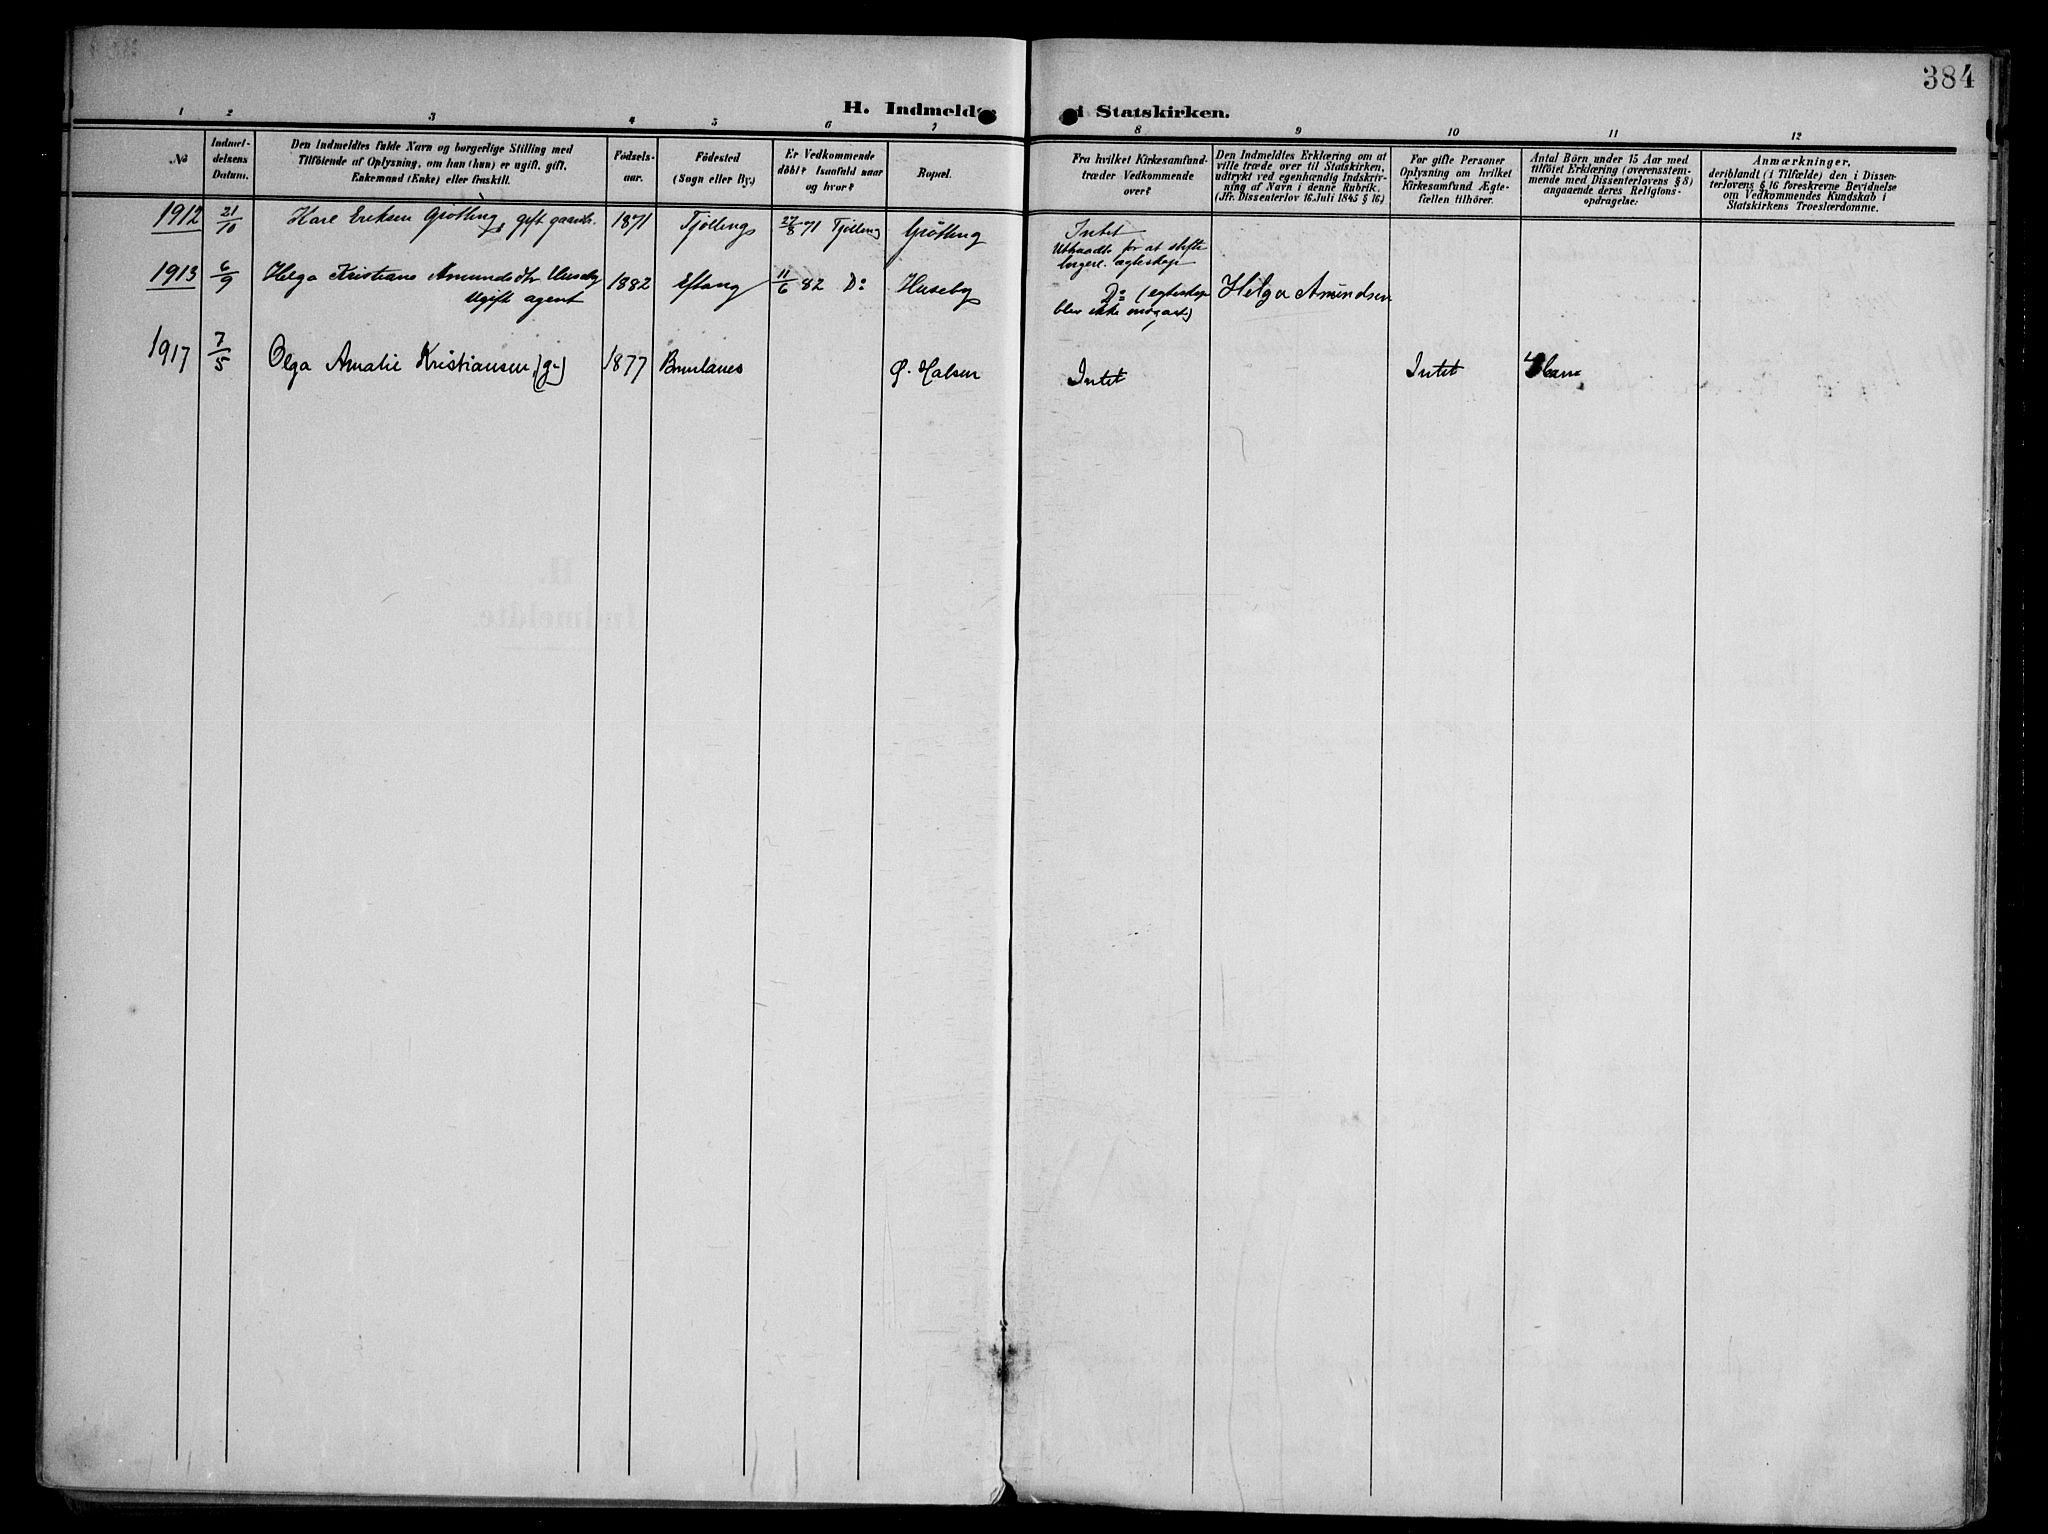 384
H. Indmeld
i Statskirken.
1 2 3 4 5 6 7 8 9 10 11 12
No
Indmel-
delsens
Datum.
Den Indmeldtes fulde Navn og borgerlige Stilling med
Tilföiende af Oplysning, om han (hun) er ugift, gift,
Enkemand (Enke) eller fraskilt.
Födsels-
aar.
Födested
(Sogn eller By.)
Er Vedkommende
döbt? Isaafald naar
og hvor?
Bopæl.
Fra hvilket Kirkesamfund
træder Vedkommende
over?
Den Indmeldtes Erklæring om at
ville træde over til Statskirken,
udtrykt ved egenhændig Indskriv-
ning af Navn i denne Rubrik.
(Jfr. Dissenterlov 16. Juli 1845 § 16.)
For gifte Personer
Oplysning om hvilket
Kirkesamfund Ægte-
fællen tilhörer.
Antal Börn under 15 Aar med
tilföiet Erklæring (overensstem-
mende med Dissenterlovens § 8)
angaaende deres Religions-
opdragelse:
Anmærkninger,
deriblandt (i Tilfælde) den i Dissen-
terlovens § 16 foreskrevne Bevidnelse
om Vedkommendes Kundskab i
Statskirkens Troeslærdomme.
1912 21/10 Karl Eriksen Grötting, gift gaardb. 1871 Tjölling 27/8 71 Tjölling Grötting Intet
Utraadte for at stifte
borgerl. ægteskap
1913 6/9 Helga Kristiane Amundsdtr Huseby 1882 Eftang 11/6 82 Do Huseby Do (egteskap Helga Amundsen
Ugift agent
blev ikke indgaaet)
1917 7/5 Olga Amalie Kristiansen, (g.) 1877 Brunlanes Ø. Halsen Intet Intet
H.
Indmeldte.